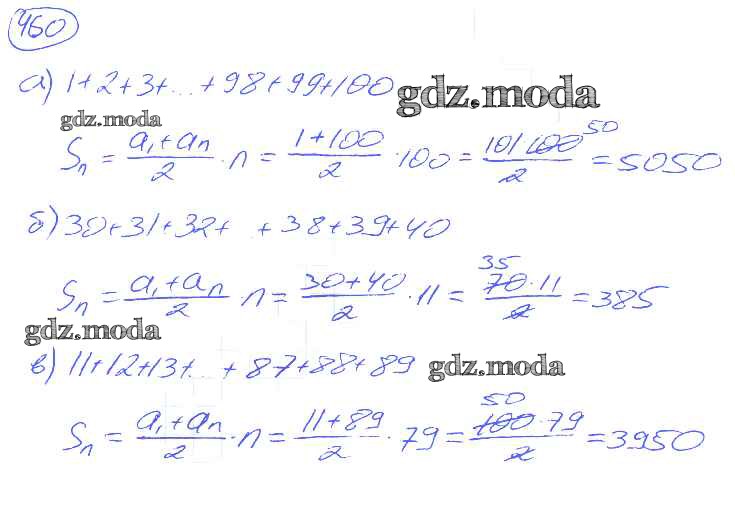 460
а) 1+2+3+...+98+99+100 gdz.moda
gdz.moda
Sₙ = (a₁+aₙ)/2 · n = (1+100)/2 · 100 = (101 100)/2 50 = 5050
б) 30+31+32+ +38+39+40
Sₙ = (a₁+aₙ)/2 n = (30+40)/2 · 11 = 35 (70·11)/2 = 385
gdz.moda
в) 11+12+13+...+87+88+89 gdz.moda
Sₙ = (a₁+aₙ)/2 · n = (11+89)/2 · 79 = 50 (100·79)/2 = 3950